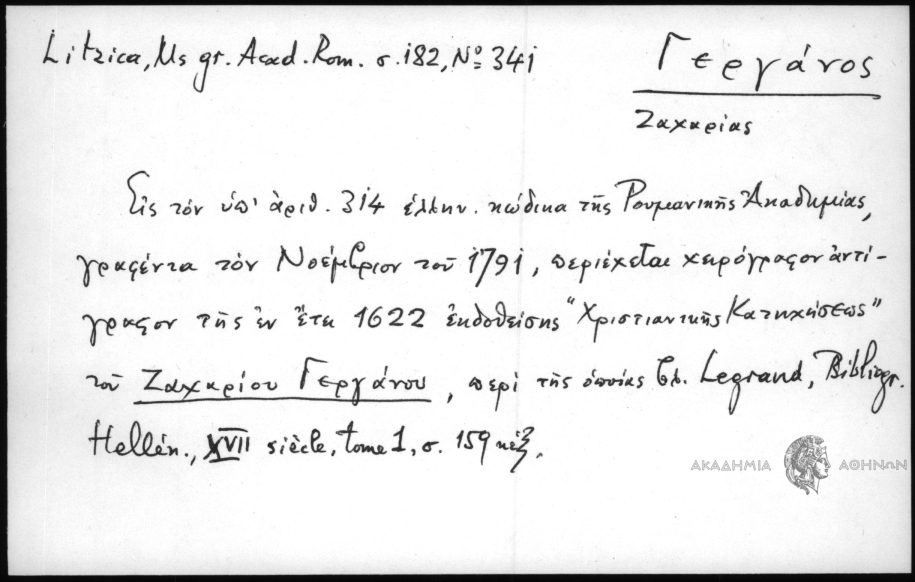 Litzica, Ms gr. Acad. Rom. σ. 182, Nº 341
Γεργάνος
Ζαχαρίας
Εἰς τὸν ὑπ' ἀριθ. 314 ἑλλην. κώδικα τῆς Ρουμανικῆς Ἀκαδημίας,
γραφέντα τὸν Νοέμβριον τοῦ 1791, περιέχεται χειρόγραφον ἀντί-
γραφον τῆς ἐν ἔτει 1622 ἐκδοθείσης "Χριστιανικῆς Κατηχήσεως"
τοῦ Ζαχαρίου Γεργάνου, περὶ τῆς ὁποίας βλ. Legrand, Bibliogr.
Hellén., XVII siècle, tome 1, σ. 159 κἑξ.
ΑΚΑΔΗΜΙΑ ΑΘΗΝΩΝ